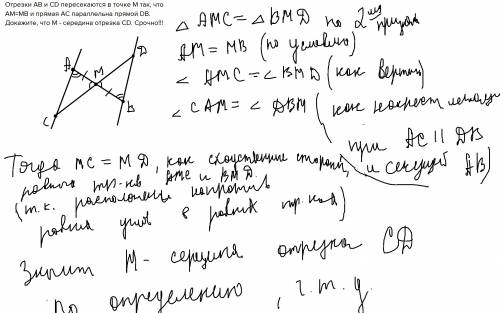 Отрезки АВ и CD пересекаются в точке М так, что
АМ=МВ и прямая АС параллельна прямой DB.
Докажите, что М - середина отрезка CD. Срочно!!!
△ AMC = △ BMD по 2ому призн
AM = MB (по условию)
∠ AMC = ∠ BMD (как верти
∠ CAM = ∠ DBM (как накрест лежащие
при AC || DB
и секущей AB)
A
M
D
C
B
Тогда MC = MD, как сходственные стороны
равных тр-ков AMC и BMD.
(т.к. расположены напротив
равных углов в равных
Значит M - середина отрезка CD
по определению, ч.т.д.